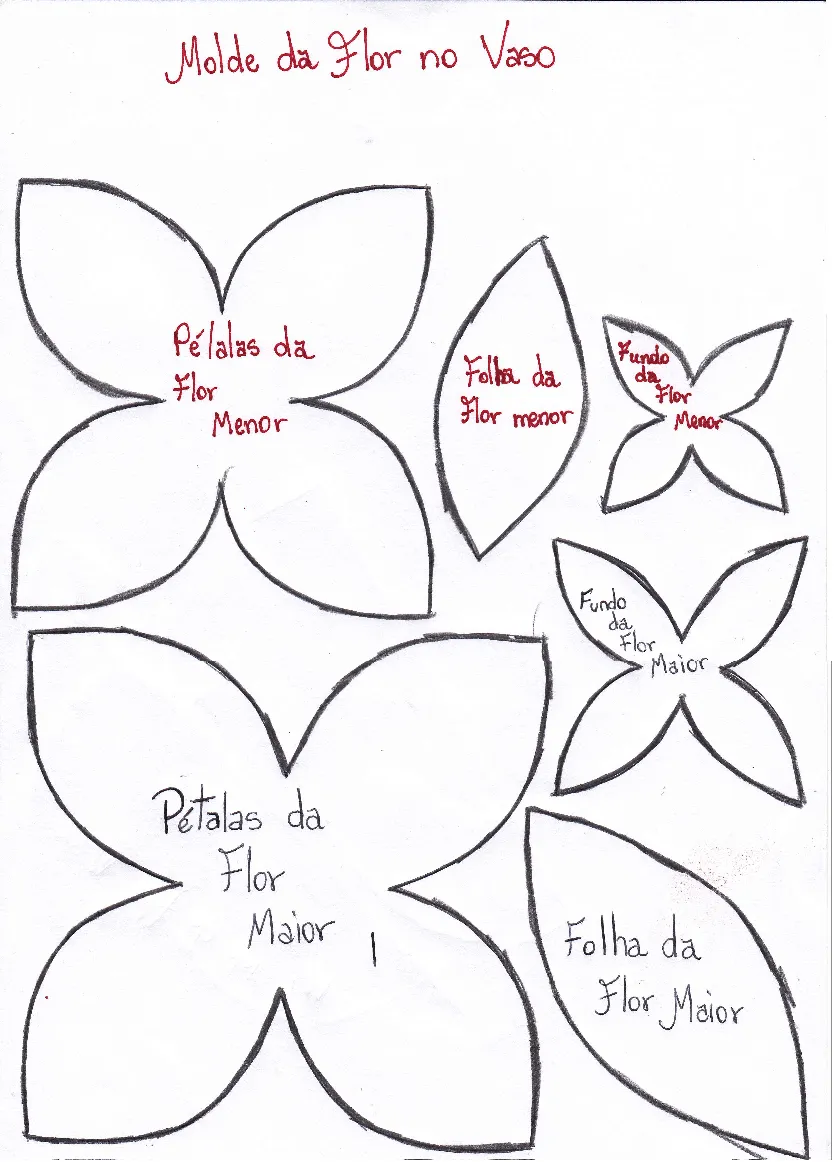 Molde da Flor no Vaso
Pétalas da
Flor
Menor
Folha da
Flor menor
Fundo
da
Flor
Menor
Fundo
da
Flor
Maior
Pétalas da
Flor
Maior
Folha da
Flor Maior